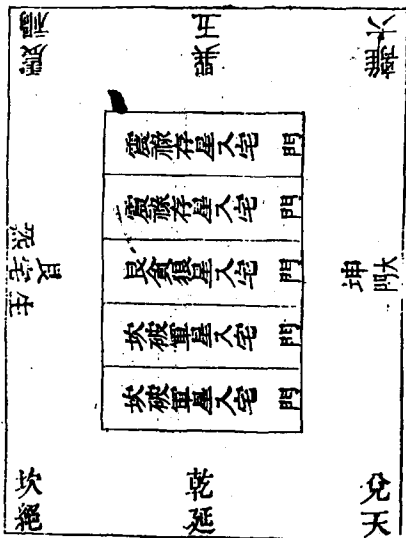 震禍
巽五
離六
震祿存星入宅 門
震祿存星入宅 門
艮貪狼星入宅 門
坎破軍星入宅 門
坎破軍星入宅 門
艮宅生
坤
大門
坎絕
乾延
兌天